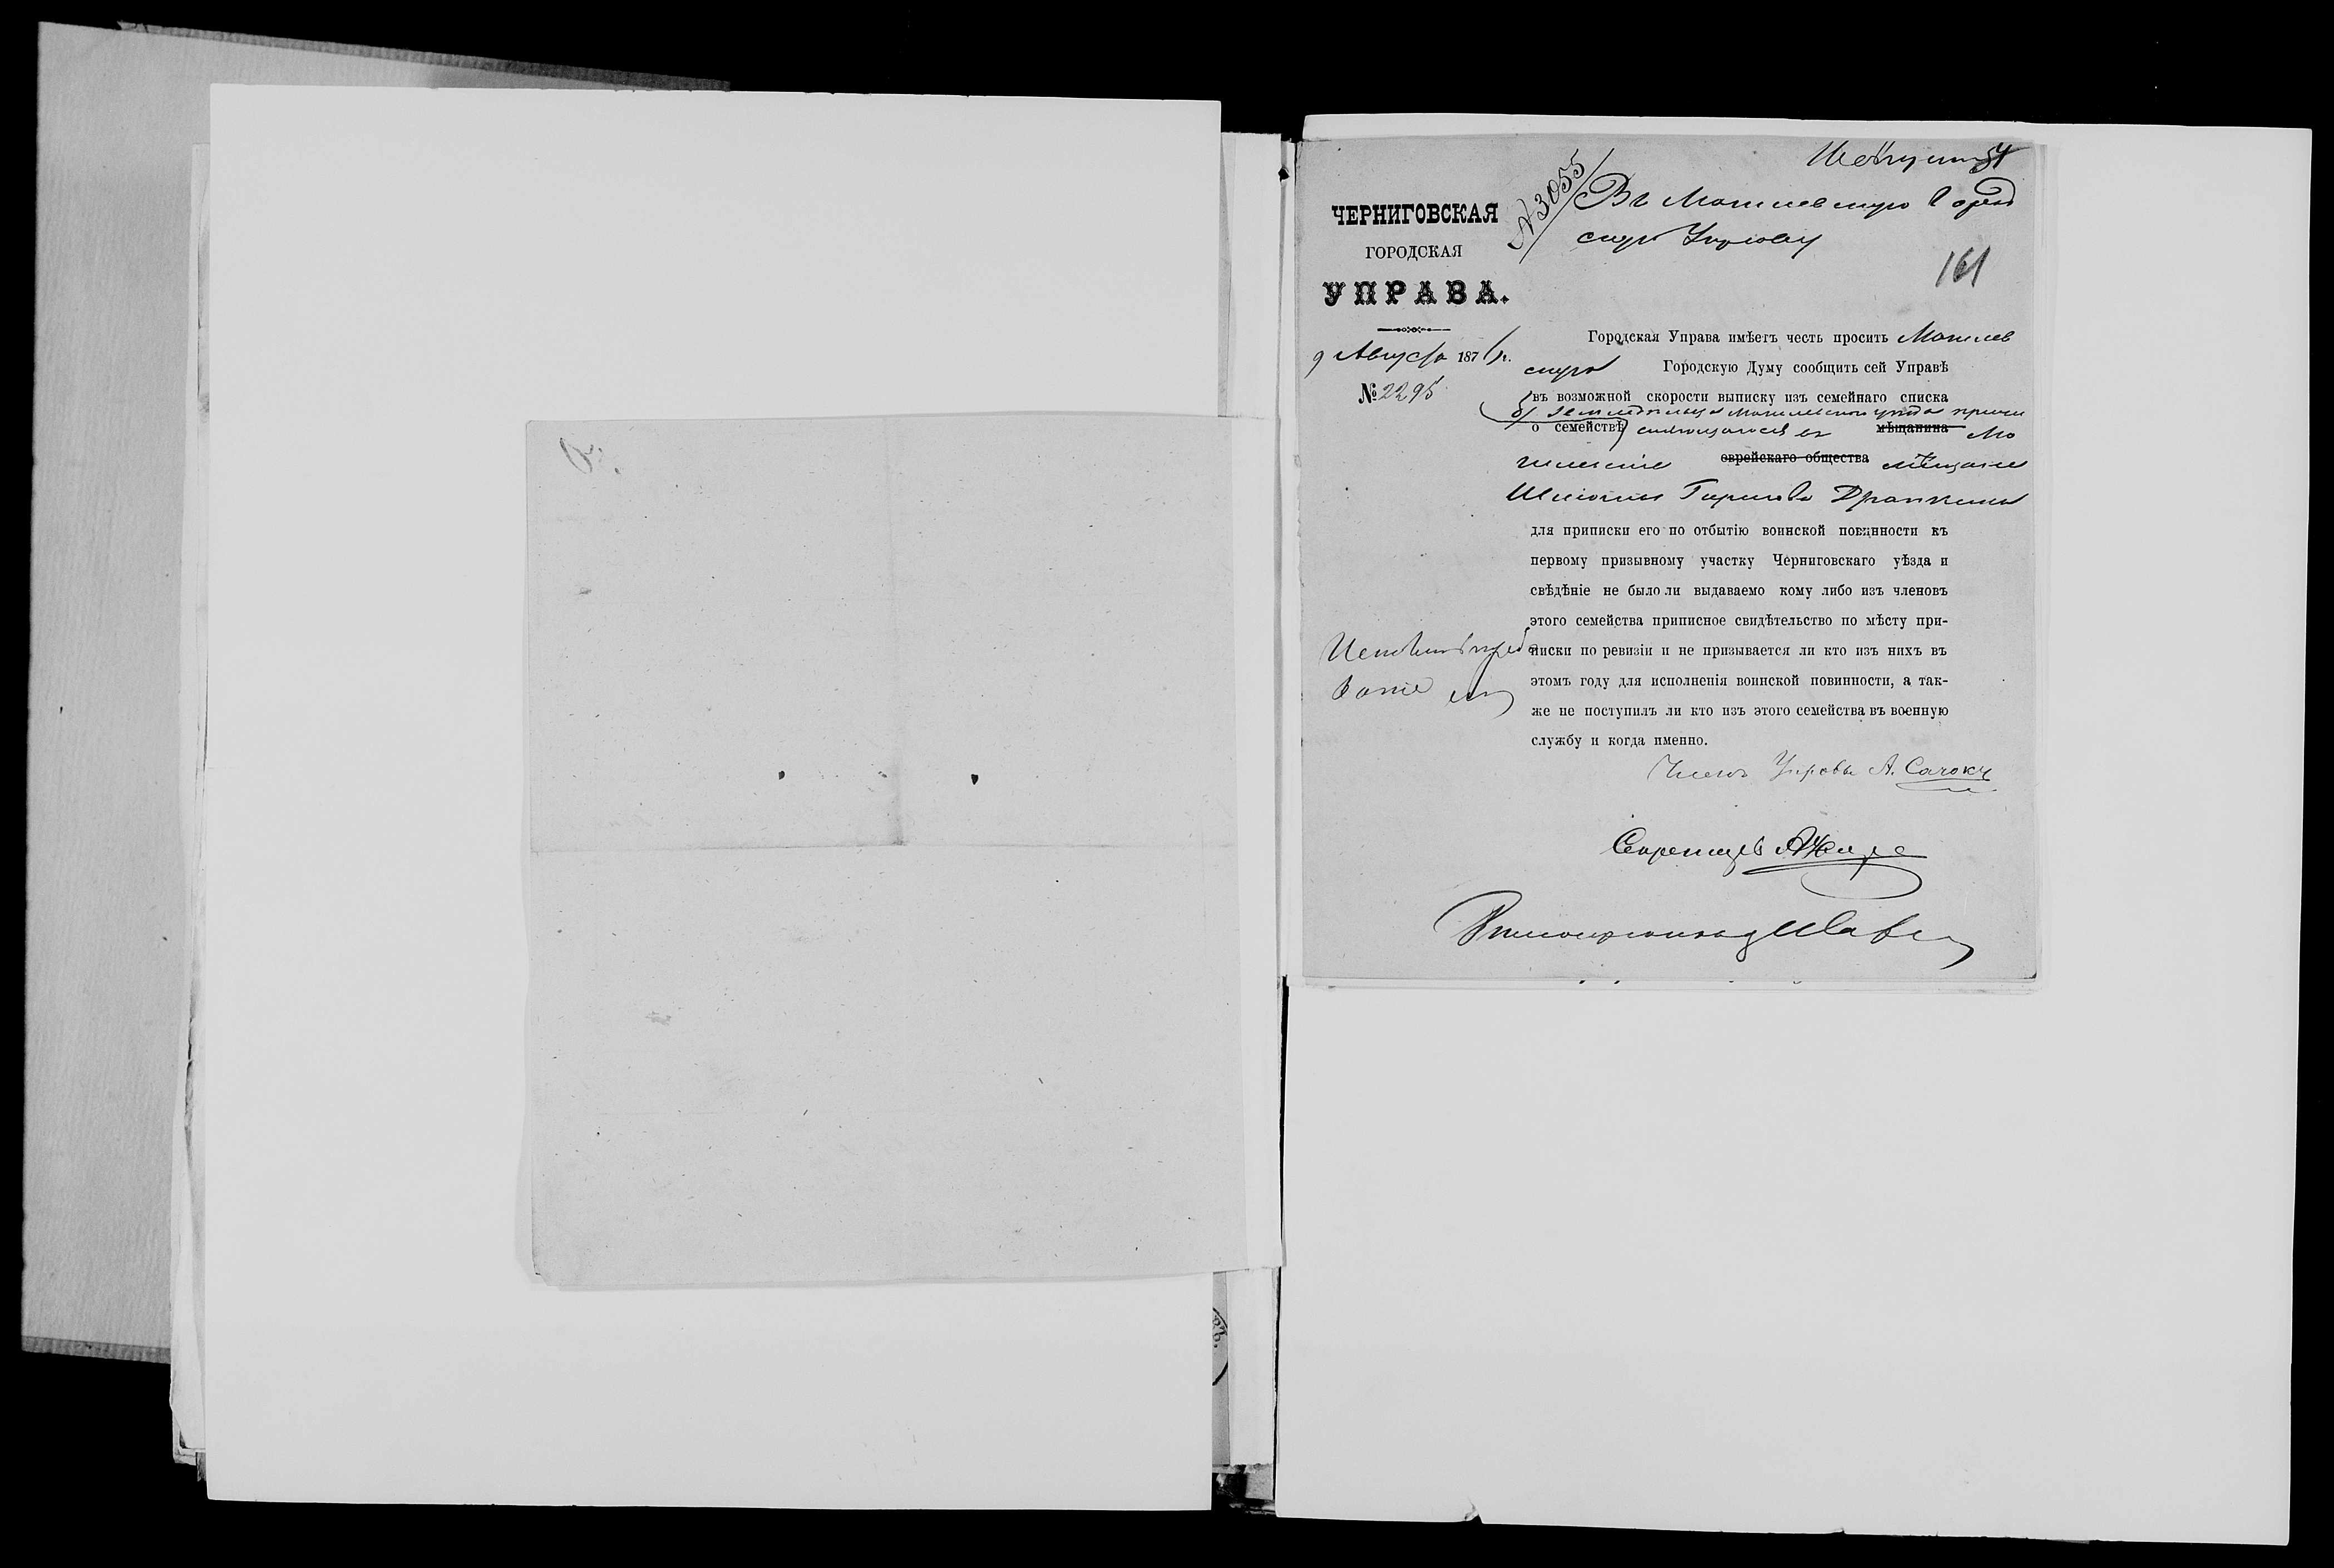 54
№ 3055
Въ Могилевскую Город
скую Управу
161
ЧЕРНИГОВСКАЯ
ГОРОДСКАЯ
УПРАВА.
9 Августа 1876 г.
№ 2295
Городская Управа имѣетъ честь просить Могилев
скую Городскую Думу сообщить сей Управѣ
въ возможной скорости выписку изъ семейнаго списка
земледѣльца Могилевскаго уѣзда
о семействѣ мѣщанина Мо
еврейскаго общества мѣщане
Гиршова Драпкина
для приписки его по отбытію воинской повинности къ
первому призывному участку Черниговскаго уѣзда и
свѣдѣніе не было ли выдаваемо кому либо изъ членовъ
этого семейства приписное свидѣтельство по мѣсту при-
писки по ревизіи и не призывается ли кто изъ нихъ въ
этомъ году для исполненія воинской повинности, а так-
же не поступилъ ли кто изъ этого семейства въ военную
службу и когда именно.
Членъ Управы А. Сачокъ
Секретарь